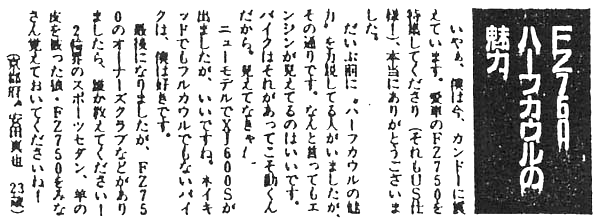 ハーフカウルの
魅力
いやぁ、僕は今、カンドーに震
えています。愛車のFZ750を
特集してくださり(それもUS仕
様!)、本当にありがとうございま
した。
だいぶ前に“ハーフカウルの魅
力”を力説してる人がいましたが、
その通りです。なんと言ってもエ
ンジンが見えてるのはいいです。
バイクはそれがあってこそ動くん
だから。見えてなきゃ!
ニューモデルでXJ600Sが
出ましたが、いいですね。ネイキ
ッドでもフルカウルでもないバイ
クは、僕は好きです。
最後になりましたが、FZ75
0のオーナーズクラブなどがあり
ましたら、誰か教えてください!
2輪界のスポーツセダン、羊の
皮を被った狼・FZ750をみな
さん覚えておいてくださいね!
(京都府・安田真也 23歳)